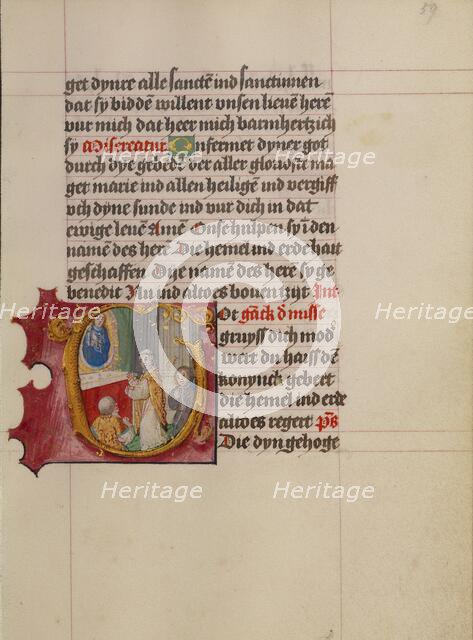 59
get dynre alle sanctē ind sanctinnen
dat sy biddē willent unsen lieuē herē
vur mich dat heer mich barmhertzich
sy Misereatur Onfermet dyner got
durch dye gebede der aller gloriost ma
get marie ind allen heiligē ind vergiff
vch dyne sunde ind vur dich in dat
ewige leuē Amē Onse hulpen sy ī den
namē des herē Die hemel ind erde hait
geschaffen Dye namē des here sy ge
benedit Nu ind altoes bouen tzyt Int
gāck d misse
gruyss dich mod
weir du haist dē
konynck gebeert
die hemel ind erde
altoes regert ps
Die dyn gehoge
Heritage Images